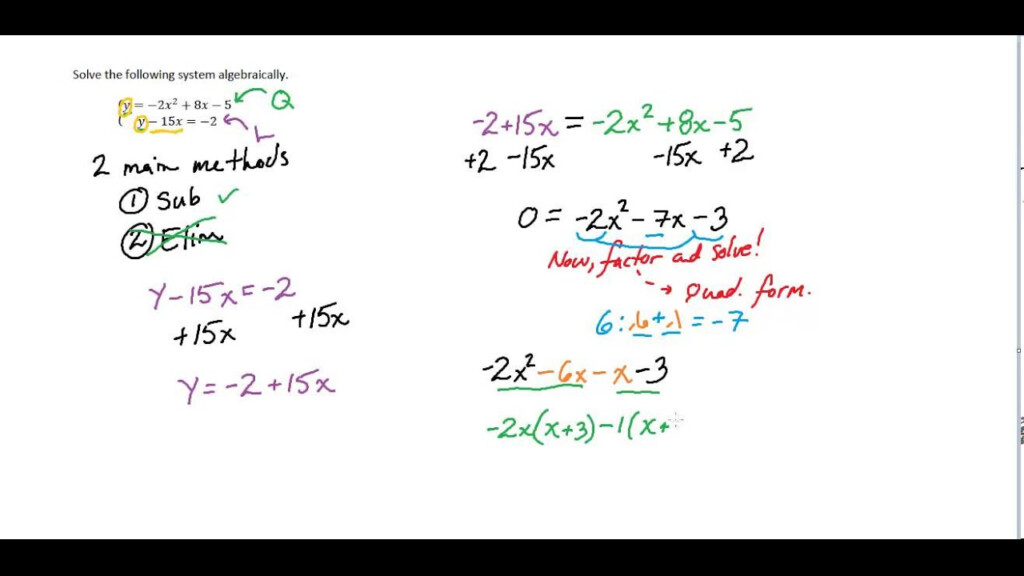 Solve the following system algebraically.
y = −2x² + 8x − 5 Q
y − 15x = −2 L
2 main methods
① Sub ✓
② Elim
y-15x=-2
+15x +15x
y=-2+15x
-2+15x = -2x²+8x-5
+2 -15x -15x +2
0 = -2x²-7x-3
Now, factor ad solve!
→ Quad. form.
6: -6+-1 = -7
-2x²-6x-x-3
-2x(x+3)-1(x+